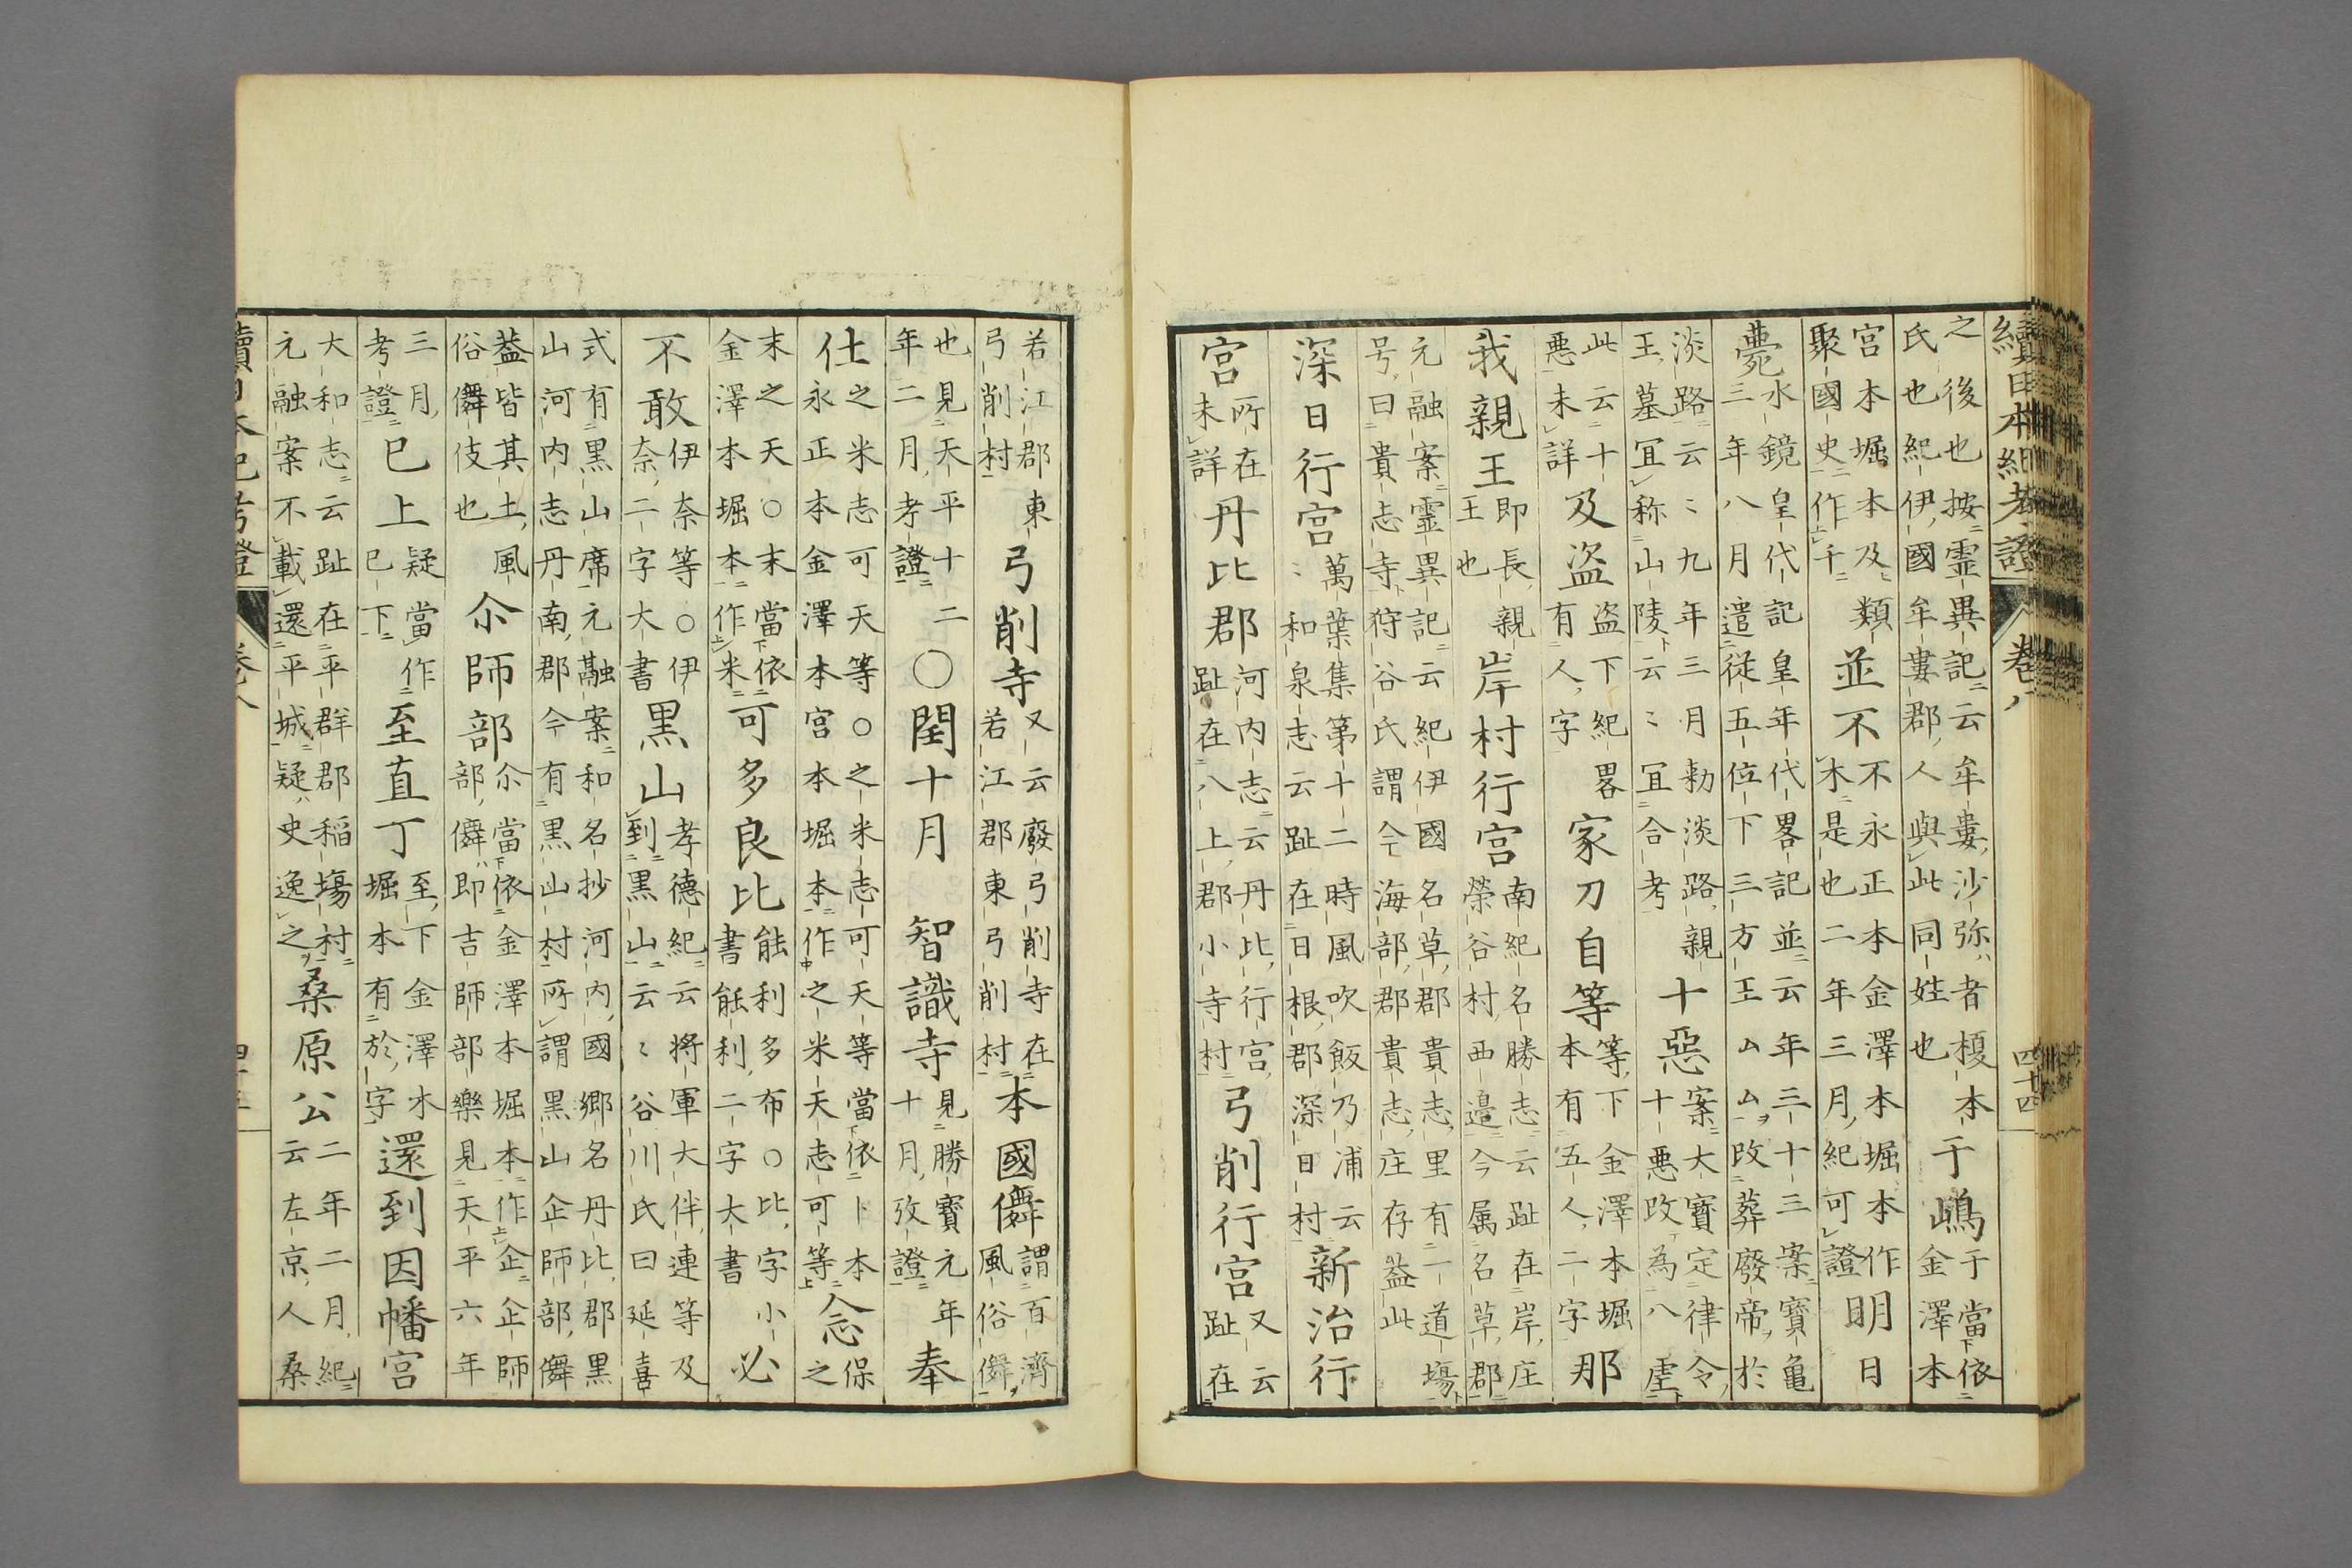 續日本紀考證 卷八 四十四
之後也按霊異記云牟婁沙弥者榎本
氏也紀伊國牟婁郡人與此同姓也
于嶋
于當依
金澤本
宮本堀本及類
聚國史作千
並不
不永正本金澤本堀本作
木是也二年三月紀可證
明日
薨
水鏡皇代記皇年代畧記並云年三十三案寳亀
三年八月遣從五位下三方王ムム改葬廢帝於
淡路云〻九年三月勅淡路親
王墓冝称山陵云〻冝合考
十惡
案大寳定律令
十悪改為八虐
此云十
悪未詳
及盗
盗下紀畧
有人字
家刀自等
等下金澤本堀
本有五人二字
那
我親王
即長親
王也
岸村行宮
南紀名勝志云趾在岸庄
榮谷村西邉今属名草郡
元融案霊異記云紀伊國名草郡貴志里有一道塲
号曰貴志寺狩谷氏謂今海部郡貴志庄存葢此
深日行宮
萬葉集第十二時風吹飯乃浦云
〻和泉志云趾在日根郡深日村
新治行
宮
所在
未詳
丹比郡
河内志云丹比行宮
趾在八上郡小寺村
弓削行宮
又云
趾在
若江郡東
弓削村
弓削寺
又云廢弓削寺在
若江郡東弓削村
本國儛
謂百濟
風俗儛
也見天平十二
年二月考證
〇閏十月 智識寺
見勝寳元年
十月攷證
奉
仕
之米志可天等〇之米志可天等當依卜本
永正本金澤本宮本堀本作之米天志可等
念
保
之
末之天〇末當依
金澤本堀本作米
可多良比
能利多布〇比字小
書能利二字大書
必
不敢
伊奈等〇伊
奈二字大書
黒山
孝德紀云將軍大伴連等及
到黒山云〻谷川氏曰延喜
式有黒山席元融案和名抄河内國郷名丹比郡黒
山河内志丹南郡今有黒山村所謂黒山企師部儛
葢皆其土風
俗儛伎也
尒師部
尒當依金澤本堀本作企企師
部儛即吉師部樂見天平六年
三月
考證
巳上
疑當作
巳下
至直丁
至下金澤本
堀本有於字
還到因幡宮
大和志云趾在平群郡稲塲村
元融案不載還平城疑史逸之
桑原公
二年二月紀
云左京人桑
續日本紀考證 卷八